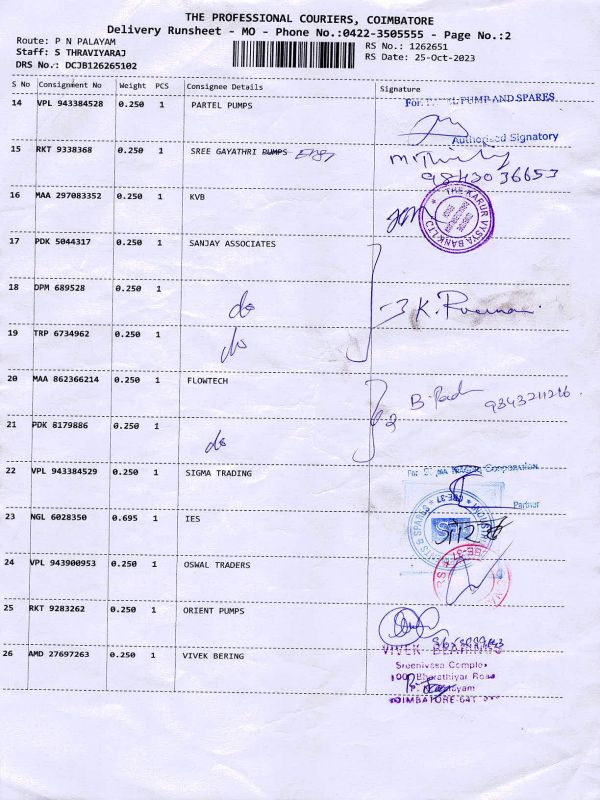 THE PROFESSIONAL COURIERS, COIMBATORE
Delivery Runsheet - MO - Phone No.:0422-3505555 - Page No.:2
Route: P N PALAYAM
Staff: S THRAVIYARAJ
DRS No.: DCJB126265102
RS No.: 1262651
RS Date: 25-Oct-2023
S No Consignment No Weight PCS Consignee Details Signature
14 VPL 943384528 0.250 1 PARTEL PUMPS
PUMP AND SPARES
Authorised Signatory
15 RKT 9338368 0.250 1 SREE GAYATHRI PUMPS Engg
9843036653
16 MAA 297083352 0.250 1 KVB
THE KARUR VYSYA BANK LTD
17 PDK 5044317 0.250 1 SANJAY ASSOCIATES
18 DPM 689528 0.250 1 do
3 K.
19 TRP 6734962 0.250 1 do
20 MAA 862366214 0.250 1 FLOWTECH
B.
21 PDK 8179886 0.250 1 do
2
22 VPL 943384529 0.250 1 SIGMA TRADING
Partner
23 NGL 6028350 0.695 1 IES
24 VPL 943900953 0.250 1 OSWAL TRADERS
25 RKT 9283262 0.250 1 ORIENT PUMPS
26 AMD 27697263 0.250 1 VIVEK BERING
VIVEK BEARINGS
Sreenivasa Complex
100 Bharathiyar Road
COIMBATORE-641